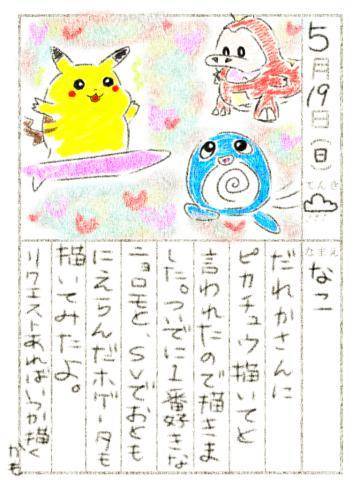 5月19日(日)
てんき
なまえ
なこ
だれかさんに
ピカチュウ描いてと
言われたので描きま
した。ついでに1番好きな
ニョロモと、SVでおとも
にえらんだホゲータも
描いてみたよ。
リクエストあればいつか描く
かも